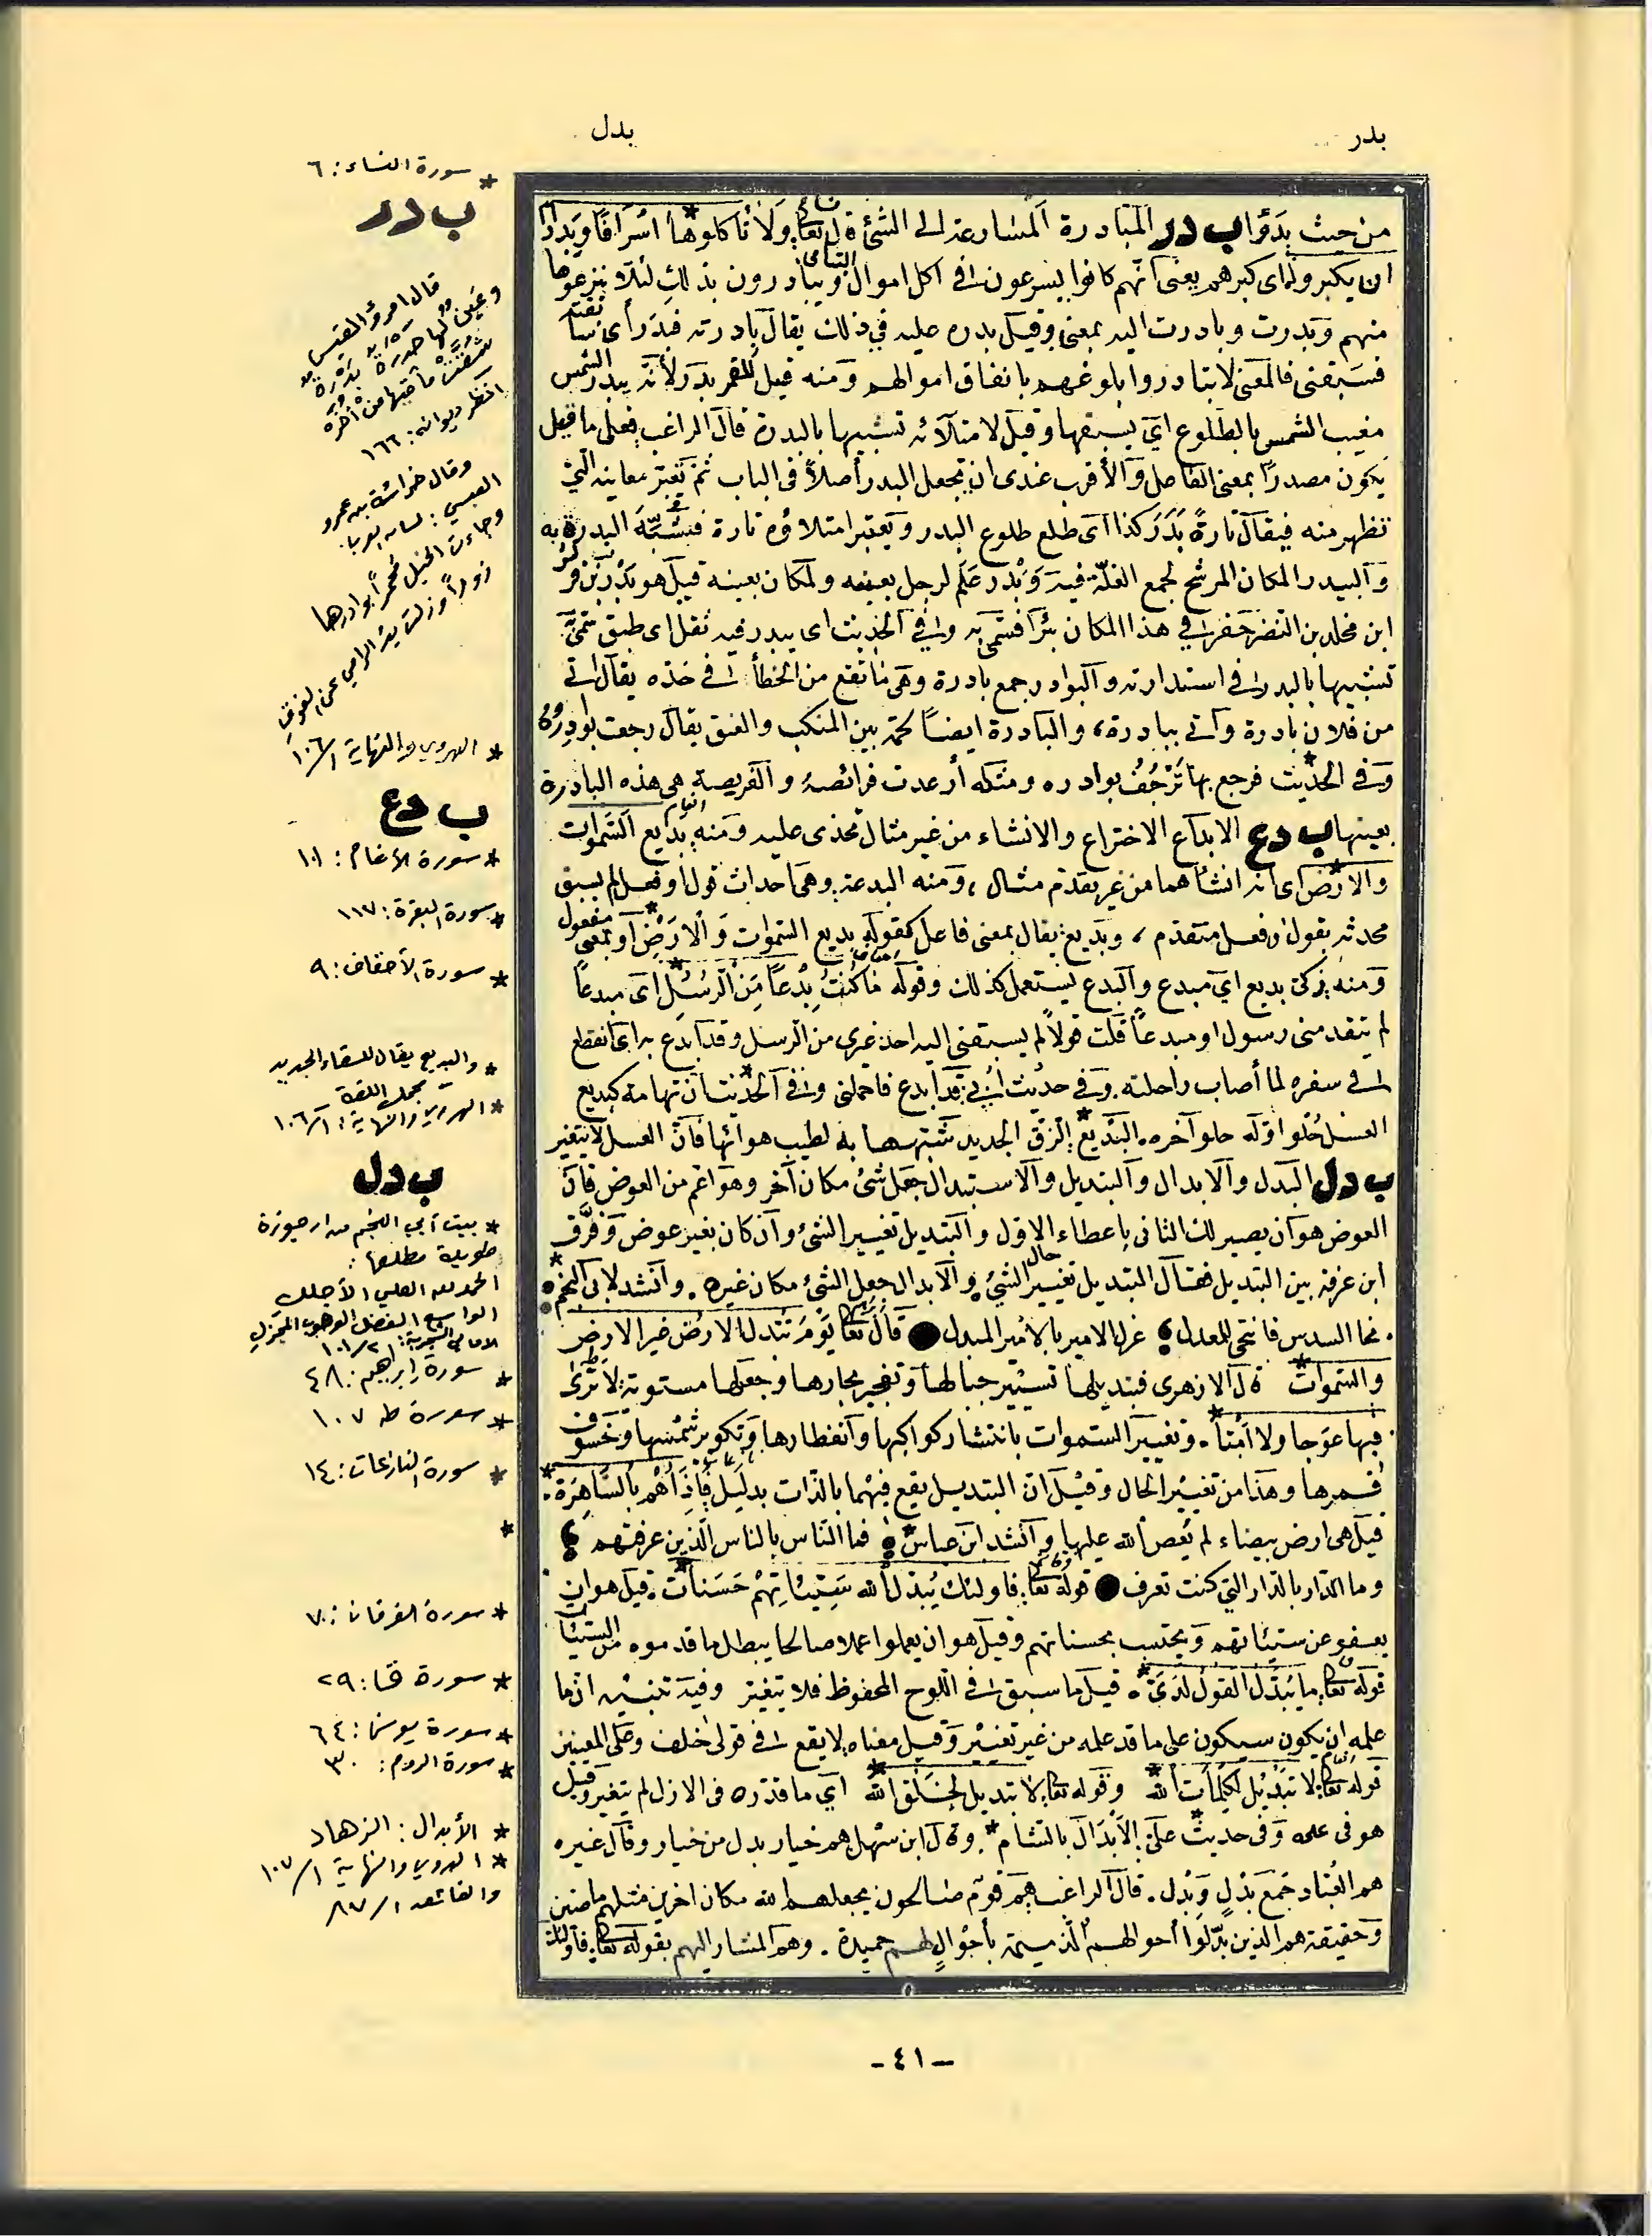 بدر
بدل
من حيث بدؤا ب در المبادرة المسارعة الى الشئ قال تعا ولا تأكلوها اسرافا وبدارا
ان يكبروا اى كبرهم يعنى أنهم كانوا يسرعون فى اكل اموال اليتامى ويبادرون بذلك لئلا ينزعوها
منهم وبدرت وبادرت اليه بمعنى وقيل بدره عليه في ذلك يقال بادرته فبدرأى
فسبقنى فالمعنى لا تبادروا بلوغهم بانفاق اموالهم ومنه قيل للقمر بدر لأنه يبدر الشمس
مغيب الشمس بالطلوع اي يسبقها وقيل لامتلائه تشبيها بالبدرة قال الراغب فعلى ما قيل
يكون مصدرا بمعنى الفاعل والأقرب عندى ان يجعل البدر أصلا فى الباب ثم تعتبر معانيه التي
تظهر منه فيقال تارة بدر كذا اى طلع طلوع البدر ويعتبر امتلاؤه تارة فشبه البدرة به
والبيدر المكان المرشح لجمع الغلة فيه وبدر علم لرجل بعينه ولمكان بعينه قيل هو بدر بن قريش
ابن مخلد بن النضر حفر فى هذا المكان بئرا فسمى به وفى الحديث اى ببدر فيه نقل اى طبق سمى
تشبيها بالبدر فى استدارته والبوادر جمع بادرة وهى ما تقع من الخطأ فى حده يقال
من فلان بادرة واتى ببادرة، والبادرة ايضا لحمة بين المنكب والعنق يقال رجعت بوادره
وفى الحديث فرجع بها ترجف بوادره ومثله أرعدت فرائصه والفريصة هى هذه البادرة
بعينها ب دع الابداع الاختراع والانشاء من غير مثال محذى عليه ومنه بديع السموات
والارض اى انه انشأهما من غير تقدم مثال، ومنه البدعة وهى احداث قول او فعل لم يسبق
محدثه بقول او فعل متقدم، وبديع يقال بمعنى فاعل كقوله بديع السموات والارض او بمعنى مفعول
ومنه زكى بديع اي مبدع والبدع يستعمل كذلك وقوله ما كنت بدعا من الرسل اى مبدعا
لم يتقدمنى رسول او مبدعا قلت قولا لم يسبقنى اليه احد غيرى من الرسل وقد ابدع به اى انقطع
فى سفره لما أصاب راحلته. وفى حديث انى قد ابدع فاحملنى وفى الحديث ان تهامة كبديع
العسل حلوا وله حلو آخره. البديع الزق الجديد شبهها به لطيب هوائها فان العسل لا يتغير
ب دل البدل والابدال والتبديل والاستبدال جعل شئ مكان آخر وهو اعم من العوض فان
العوض هو ان يصير لك الثانى باعطاء الاول والتبديل تغيير الشئ وان كان بغير عوض وفرق
ابن عرفة بين التبديل فقال التبديل تغيير حال الشئ والابدال جعل الشئ مكان غيره. وانشد لابى النجم
نحا السدس فانتحى للمعدل عزل الامير بالامير المبدل ● قال تعا يوم تبدل الارض غير الارض
والسموات قال الازهرى فتبديلها تسيير جبالها وتفجير بحارها وجعلها مستوية لا ترى
فيها عوجا ولا امتا. وتغيير السموات بانتشار كواكبها وانفطارها وتكوير شمسها وخسوف
قمرها وهذا من تغيير الحال وقيل ان التبديل يقع فيهما بالذات بدليل فاذا هم بالساهرة
قيل هى ارض بيضاء لم يعص الله عليها وانشد ابن عباس فما الناس بالناس الذين عرفتهم
وما الدار بالدار التي كنت تعرف ● قوله تعا فاولئك يبدل الله سيئاتهم حسنات. قيل هو ان
يعفو عن سيئاتهم ويحتسب بحسناتهم وقيل هو ان يعملوا عملا صالحا يبطل ما قدموه من السيئات
قوله تعا ما يبدل القول لدى. قيل ما سبق فى اللوح المحفوظ فلا يتغير وفيه تنبيه ان ما
علمه ان يكون سيكون على ما قد علمه من غير تغيير وقيل معناه لا يقع فى قولى خلف وعلى المعنيين
قوله تعا لا تبديل لكلمات الله وقوله تعا لا تبديل لخلق الله اي ما قدره فى الازل لم يتغير وقيل
هو فى علمه وفى حديث على الابدال بالشام وقال ابن سهيل هم خيار بدل من خيار وقال غيره
هم العباد جمع بدل وبدل. قال الراغب هم قوم صالحون يجعلهم الله مكان اخرين مثلهم ماضين
وحقيقته هم الذين بدلوا أحوالهم الذميمة بأحوال لهم حميدة. وهم المشار اليهم بقوله تعا فاولئك
* سورة النساء: ٦
ب در
قال امرؤ القيس
وعين لها حدرة بدرة
شقت مآقيهما من أخر
انظر ديوانه: ١٦٦
وقال خراشة بن عمرو
العبسي: لسان العرب.
وجاءت الخيل محمرا بوادرها
زورا وزلت يد الرامي عن الفوق
* الهروي والنهاية ١/١٠٦
ب دع
* سورة الأنعام: ١٠١
* سورة البقرة: ١١٧
* سورة الأحقاف: ٩
* والبديع يقال للسقاء الجديد
مجمل اللغة
* الهروي والنهاية: ١/١٠٦
ب دل
* بيت أبي النجم من ارجوزة
طويلة مطلعها:
الحمد لله العلي الأجلل
الواسع الفضل الوهوب المجزل
الامالي الشجرية: ٢/١٠١
* سورة إبراهيم: ٤٨
* سورة طه ١٠٧
* سورة النازعات: ١٤
*
* سورة الفرقان: ٧٠
* سورة ق: ٢٩
* سورة يونس: ٦٤
* سورة الروم: ٣٠
* الأبدال: الزهاد
* الهروي والنهاية ١/١٠٧
والفائق ١/٨٧
- ٤١ -